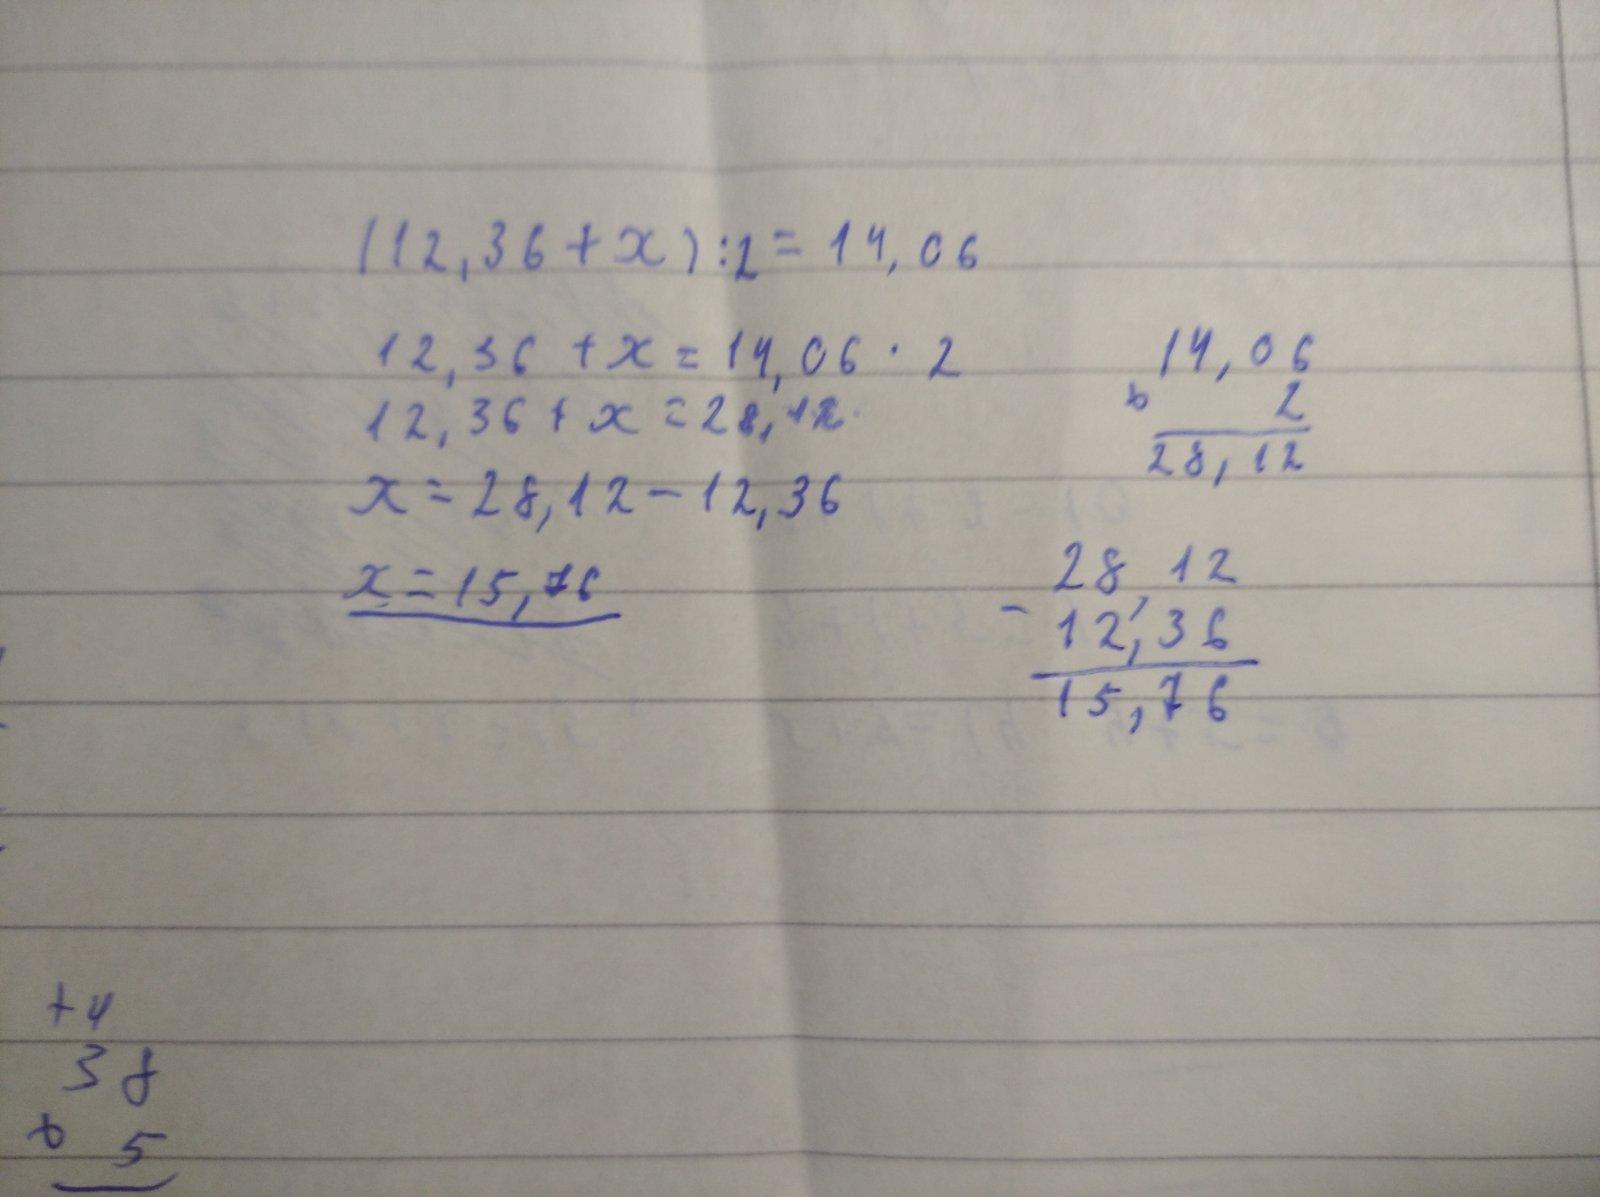 (12,36 + x) : 2 = 14,06
12,36 + x = 14,06 · 2
12,36 + x = 28,12
x = 28,12 - 12,36
x = 15,76
14,06
2
28,12
28,12
- 12,36
15,76
+4
38
5